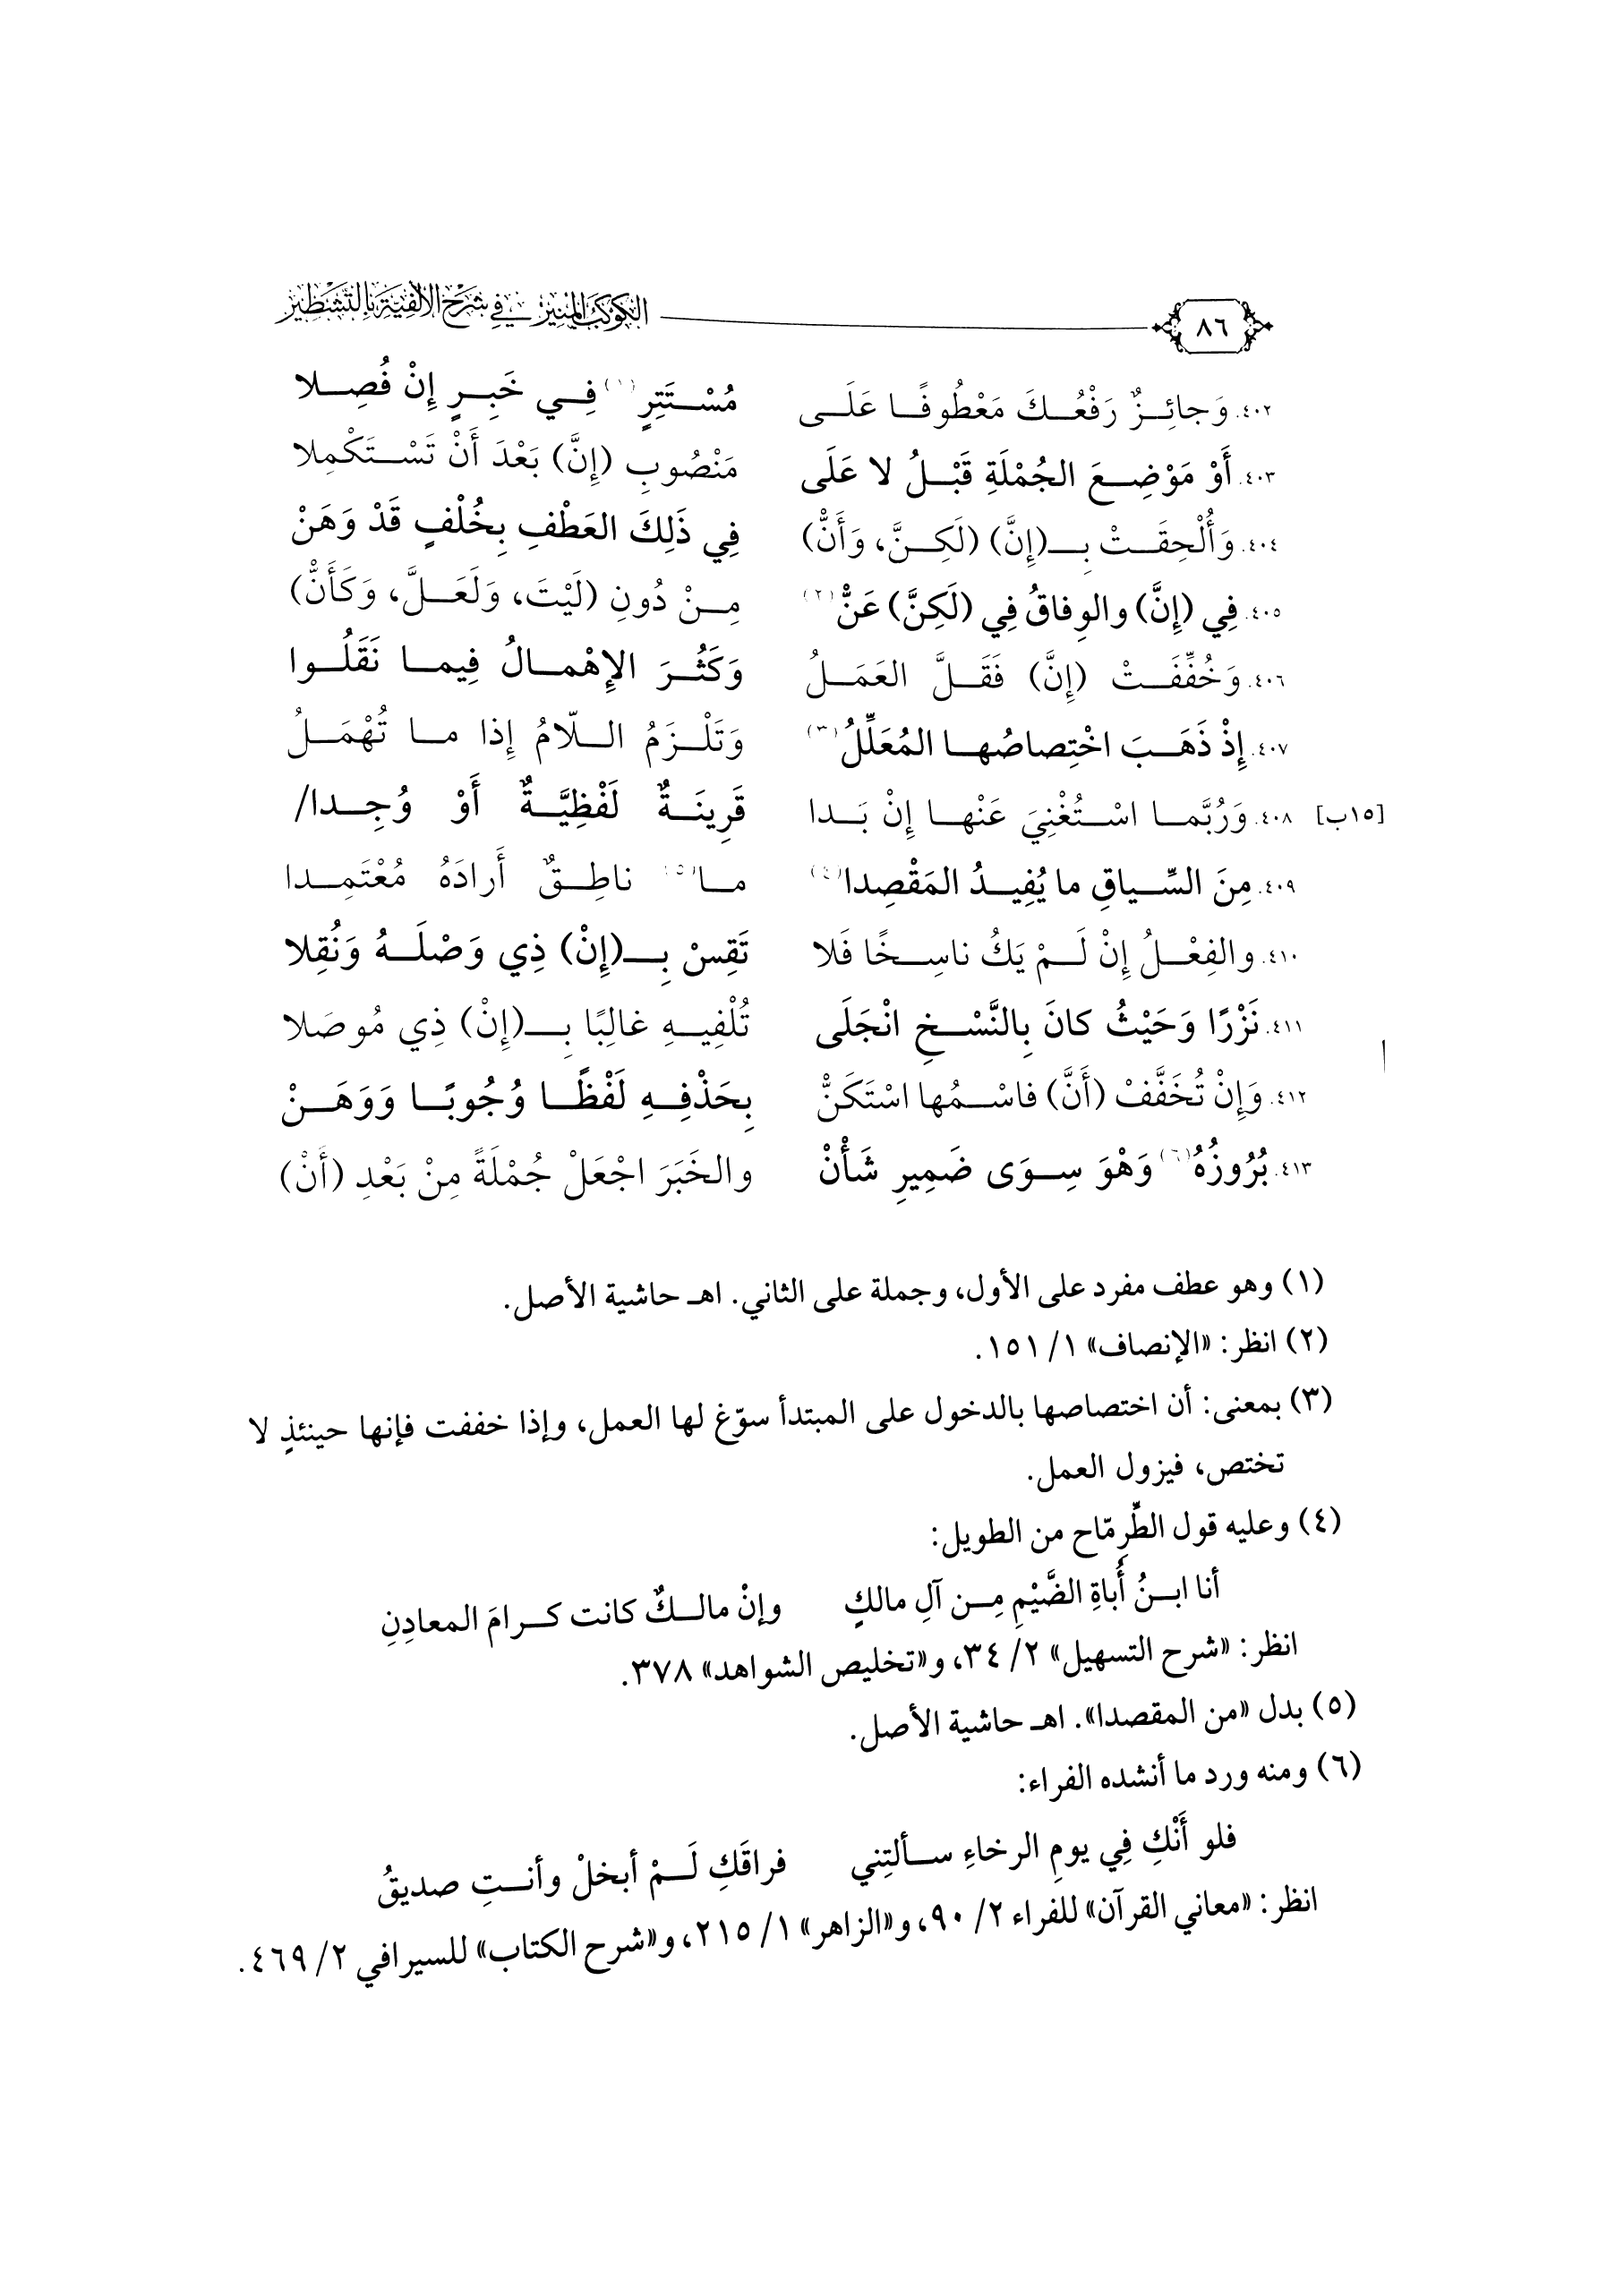 ٨٦ الكوكب المنير في شرح الألفية بالتشطير
٤٠٢. وَجائِزٌ رَفْعُكَ مَعْطُوفًا عَلَى مُسْتَتِرٍ(١) فِي خَبَرٍ إِنْ فُصِلا
٤٠٣. أَوْ مَوْضِعَ الجُمْلَةِ قَبْلُ لا عَلَى مَنْصُوبِ (إِنَّ) بَعْدَ أَنْ تَسْتَكْمِلا
٤٠٤. وَأُلْحِقَتْ بِـ(إِنَّ) (لَكِنَّ، وَأَنَّ) فِي ذَلِكَ العَطْفِ بِخُلْفٍ قَدْ وَهَنْ
٤٠٥. فِي (إِنَّ) والوِفاقُ فِي (لَكِنَّ) عَنَّْ(٢) مِنْ دُونِ (لَيْتَ، وَلَعَلَّ، وَكَأَنَّْ)
٤٠٦. وَخُفِّفَتْ (إِنَّ) فَقَلَّ العَمَلُ وَكَثُرَ الإِهْمالُ فِيما نَقَلُوا
٤٠٧. إِذْ ذَهَبَ اخْتِصاصُها المُعَلِّلُ(٣) وَتَلْزَمُ اللّامُ إِذا ما تُهْمَلُ
[١٥ب] ٤٠٨. وَرُبَّما اسْتُغْنِيَ عَنْها إِنْ بَدا قَرِينَةٌ لَفْظِيَّةٌ أَوْ وُجِدا/
٤٠٩. مِنَ السِّياقِ ما يُفِيدُ المَقْصِدا(٤) ما(٥) ناطِقٌ أَرادَهُ مُعْتَمِدا
٤١٠. والفِعْلُ إِنْ لَمْ يَكُ ناسِخًا فَلا تَقِسْ بِـ(إِنْ) ذِي وَصْلَهُ وَنُقِلا
٤١١. نَزْرًا وَحَيْثُ كانَ بِالنَّسْخِ انْجَلَى تُلْفِيهِ غالِبًا بِـ(إِنْ) ذِي مُوصَلا
٤١٢. وَإِنْ تُخَفَّفْ (أَنَّ) فاسْمُها اسْتَكَنَّْ بِحَذْفِهِ لَفْظًا وُجُوبًا وَوَهَنْ
٤١٣. بُرُوزُهُ(٦) وَهْوَ سِوَى ضَمِيرِ شَأْنْ والخَبَرَ اجْعَلْ جُمْلَةً مِنْ بَعْدِ (أَنْ)
(١) وهو عطف مفرد على الأول، وجملة على الثاني. اهـ حاشية الأصل.
(٢) انظر: «الإنصاف» ١/ ١٥١.
(٣) بمعنى: أن اختصاصها بالدخول على المبتدأ سوّغ لها العمل، وإذا خففت فإنها حينئذٍ لا
تختص، فيزول العمل.
(٤) وعليه قول الطِّرِمّاح من الطويل:
أنا ابنُ أُباةِ الضَّيْمِ مِن آلِ مالكٍ وإنْ مالكٌ كانت كرامَ المعادِنِ
انظر: «شرح التسهيل» ٢/ ٣٤، و«تخليص الشواهد» ٣٧٨.
(٥) بدل «من المقصدا». اهـ حاشية الأصل.
(٦) ومنه ورد ما أنشده الفراء:
فلو أَنْكِ فِي يومِ الرخاءِ سألتِني فراقَكِ لَمْ أبخلْ وأنتِ صديقُ
انظر: «معاني القرآن» للفراء ٢/ ٩٠، و«الزاهر» ١/ ٢١٥، و«شرح الكتاب» للسيرافي ٢/ ٤٦٩.